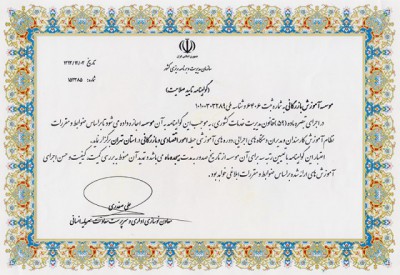 جمهوری اسلامی ایران
سازمان مدیریت و برنامه‌ریزی کشور
تاریخ
شماره: ۱۵۳۲۸۵
(گواهینامه تایید صلاحیت)
موسسه آموزش بازرگانی به شماره ثبت و شناسه ملی
در اجرای تبصره ماده (۵۸) قانون مدیریت خدمات کشوری، به موجب این گواهینامه به آن موسسه اجازه داده می شود تا براساس ضوابط و مقررات
نظام آموزش کارمندان و مدیران دستگاههای اجرایی دوره های آموزشی حیطه امور اقتصادی و بازرگانی در استان تهران برگزار نماید.
اعتبار این گواهینامه با تعیین رتبه برای آن موسسه از تاریخ صدور به مدت می باشد و تمدید آن منوط به بررسی کمیت، کیفیت و حسن اجرای
آموزش های ارائه شده بر اساس ضوابط و مقررات ابلاغی خواهد بود.
علی
معاون نوسازی اداری و سرپرست معاونت سرمایه انسانی